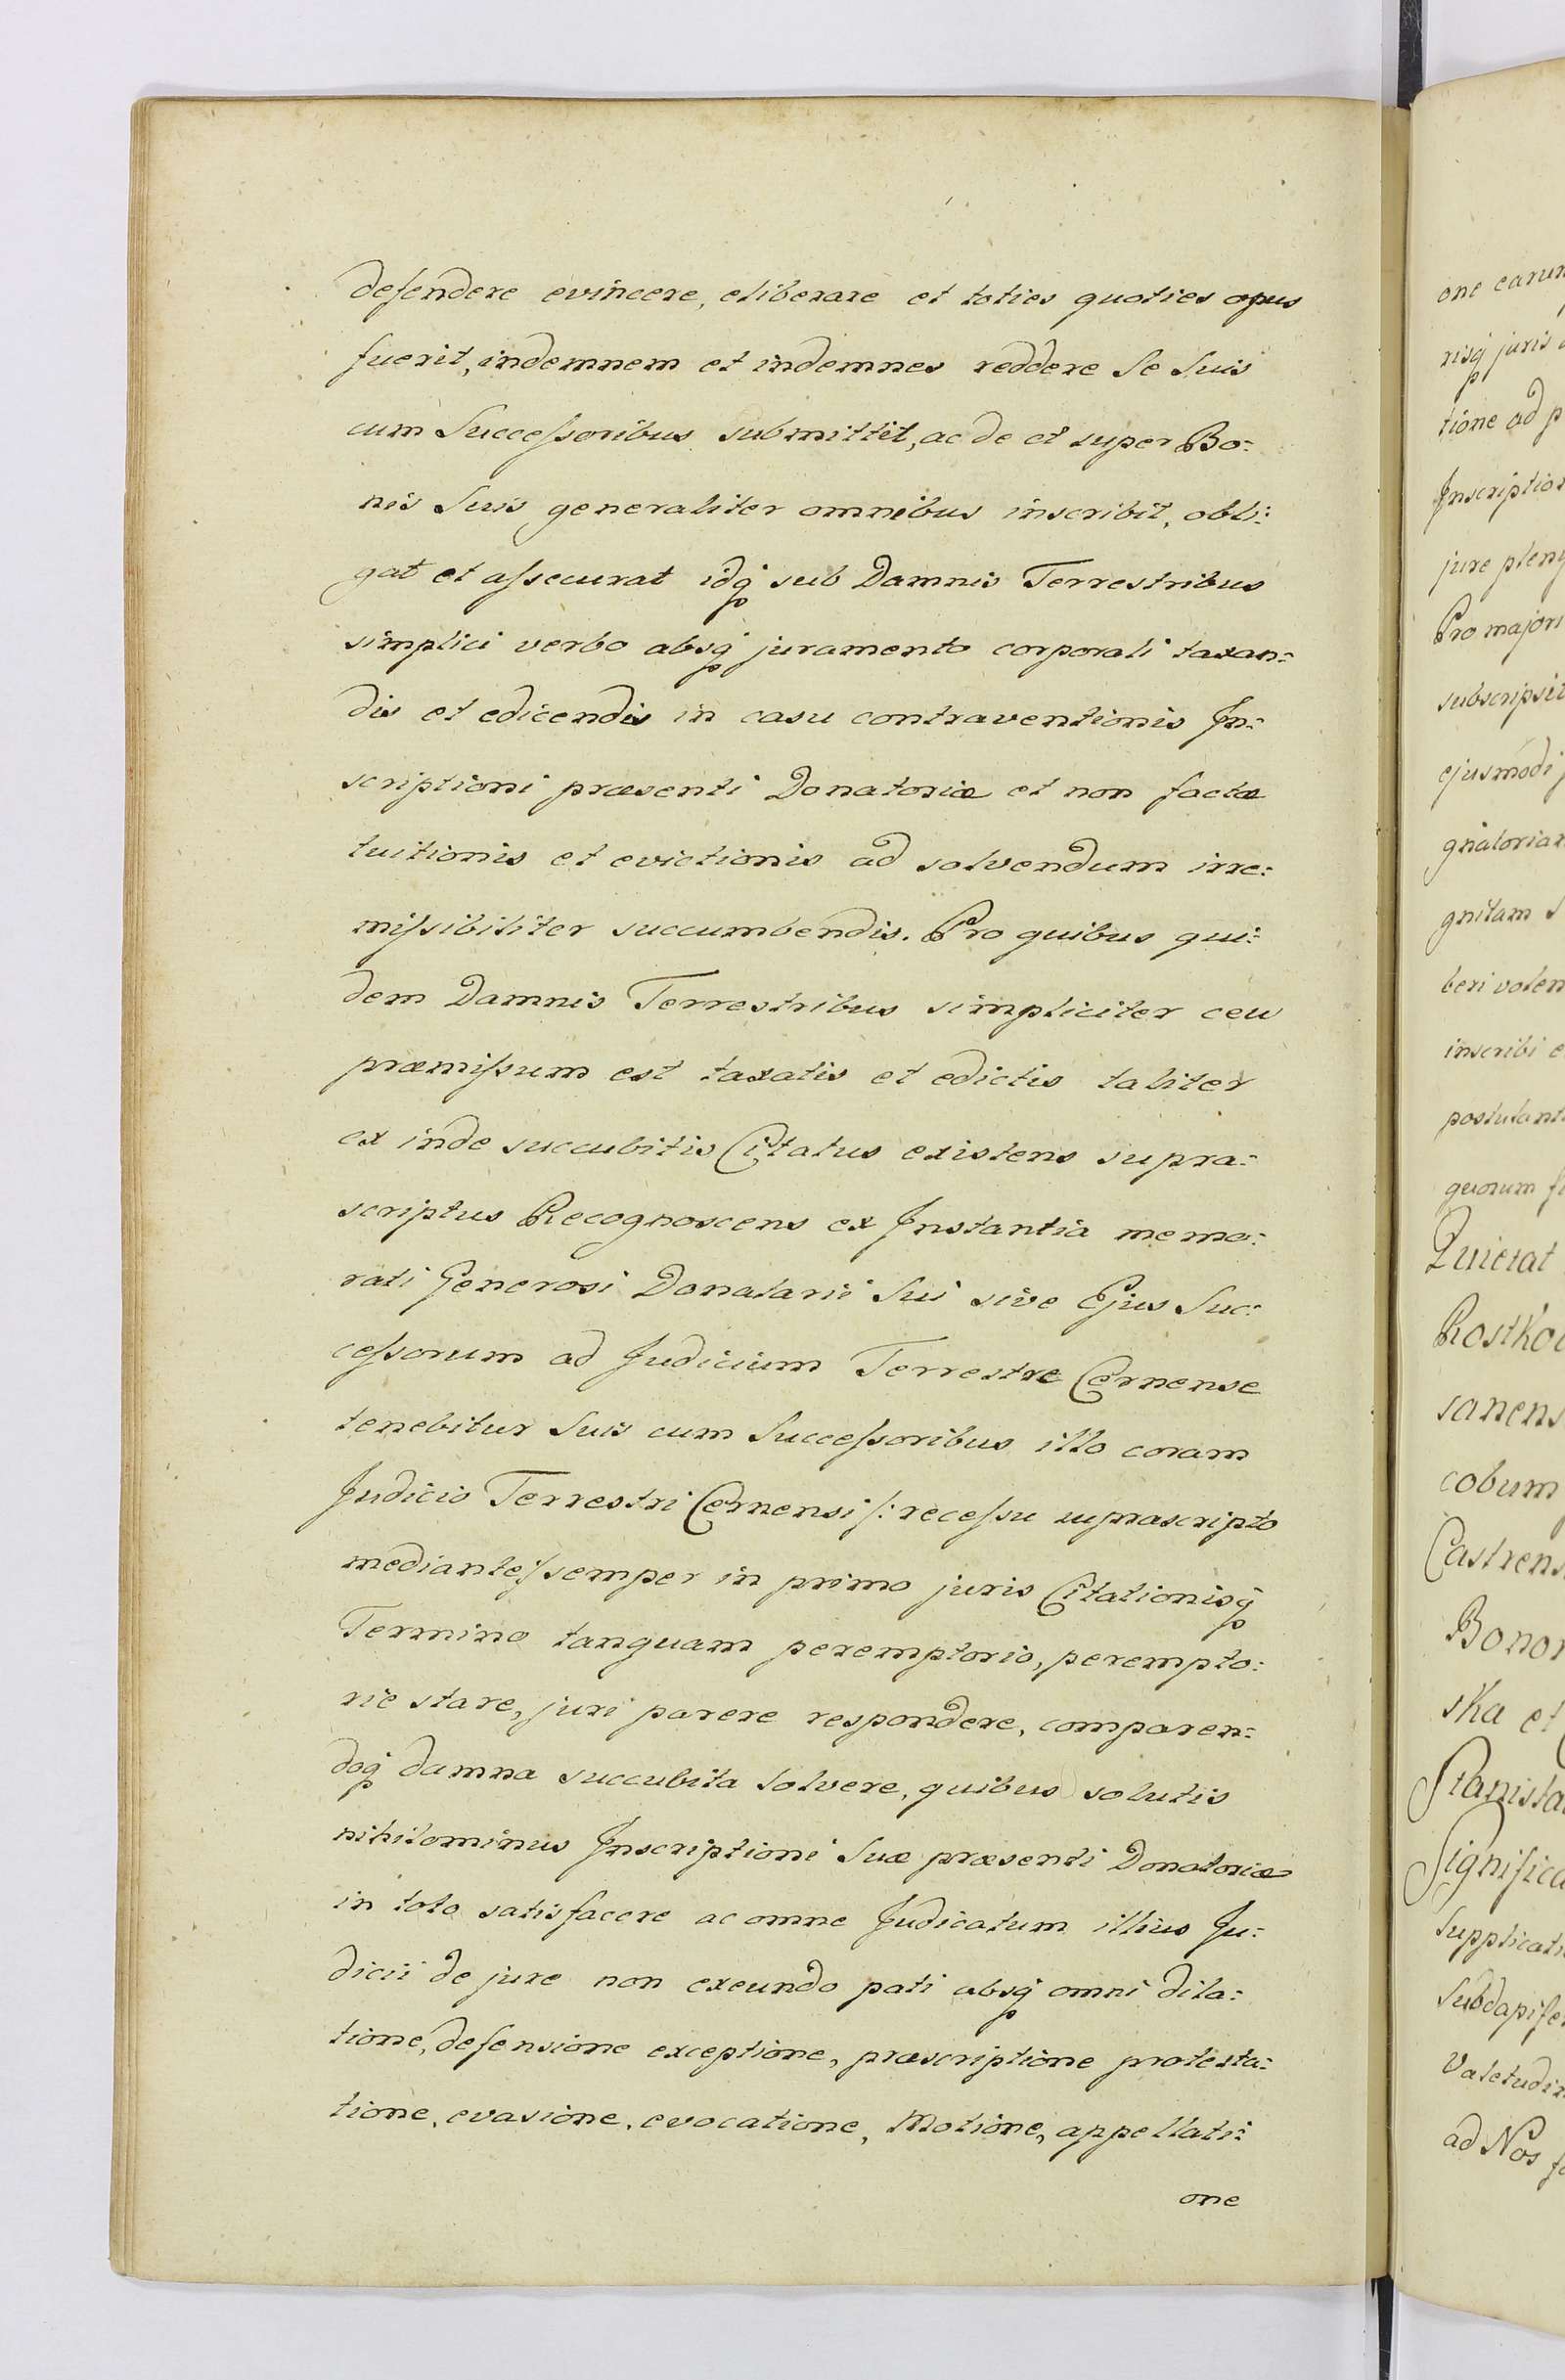 defendere evincere, eliberare et toties quoties opus
fuerit, indemnem et indemnes reddere Se Suis
cum Succeſsoribus submittit, ac de et super Bo:
nis Suis generaliter omnibus inscribit, obli:
gat et aſsecurat idq́ sub Damnis Terrestribus
simplici verbo absq́ juramento corporali taxan:
dis et edicendis in casu contraventionis In:
scriptioni præsenti Donatoriæ et non factæ
tuitionis et evictionis ad solvendum irre:
miſsibiliter succumbendis. Pro quibus qui:
dem Damnis Terrestribus simpliciter ceu
præmiſsum est taxatis et edictis taliter
ex inde succubitis Citatus existens supra:
scriptus Recognoscens ex Instantia memo:
rati Generosi Donatarii Sui sive Ejus Suc:
ceſsorum ad Judicium Terrestre Cernense
tenebitur Suis cum Succeſsoribus illo coram
Judicio Terrestri Cernensi /: receſsu suprascripto
mediante :/ semper in primo juris Citationisq́
Termino tanquam peremptorio, perempto:
rie stare, juri parere respondere, comparen:
doq́ damna succubita solvere, quibus solutis
nihilominus Inscriptioni Suæ præsenti Donatoriæ
in toto satisfacere ac omne Judicatum illius Ju:
dicii de jure non exeundo pati absq́ omni dila:
tione, defensione exceptione, præscriptione protesta:
tione, evasione, evocatione, Motione, appellati:
one
one earum
risq́ juris
tione ad p
Inscriptio
jure plen
Pro majori
subscripsit
ejusmodi
gnatoriam
gnitam s
beri volen
inscribi e
postulant
quorum
Quietat
Rostko
sanens
cobum
Castrens
Bonor
ska et
Stanisla
Significa
Supplicati
Subdapife
Valetudin
ad Nos